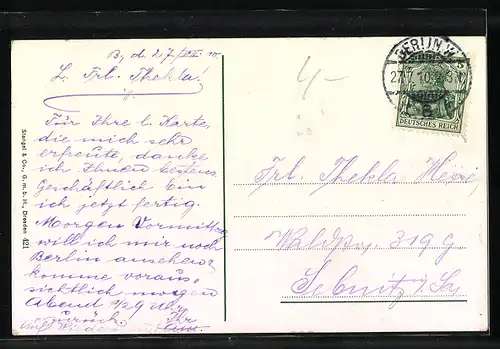 B, d. 27/VII 10.
L. Frl. Thekla!
Für Ihre l. Karte,
die mich sehr
erfreute, danke
ich Ihnen bestens.
Geschäftlich bin
ich jetzt fertig.
Morgen Vormittag
will ich mir noch
Berlin ansehen,
komme voraus-
sichtlich morgen
Abend 1/29 Uhr
zurück. Ihr
Auf
Stengel & Co., G. m. b. H., Dresden 421
4-
BERLIN W
27.7.10
DEUTSCHES REICH
Frl. Thekla
319 G
Sebnitz i/Sa